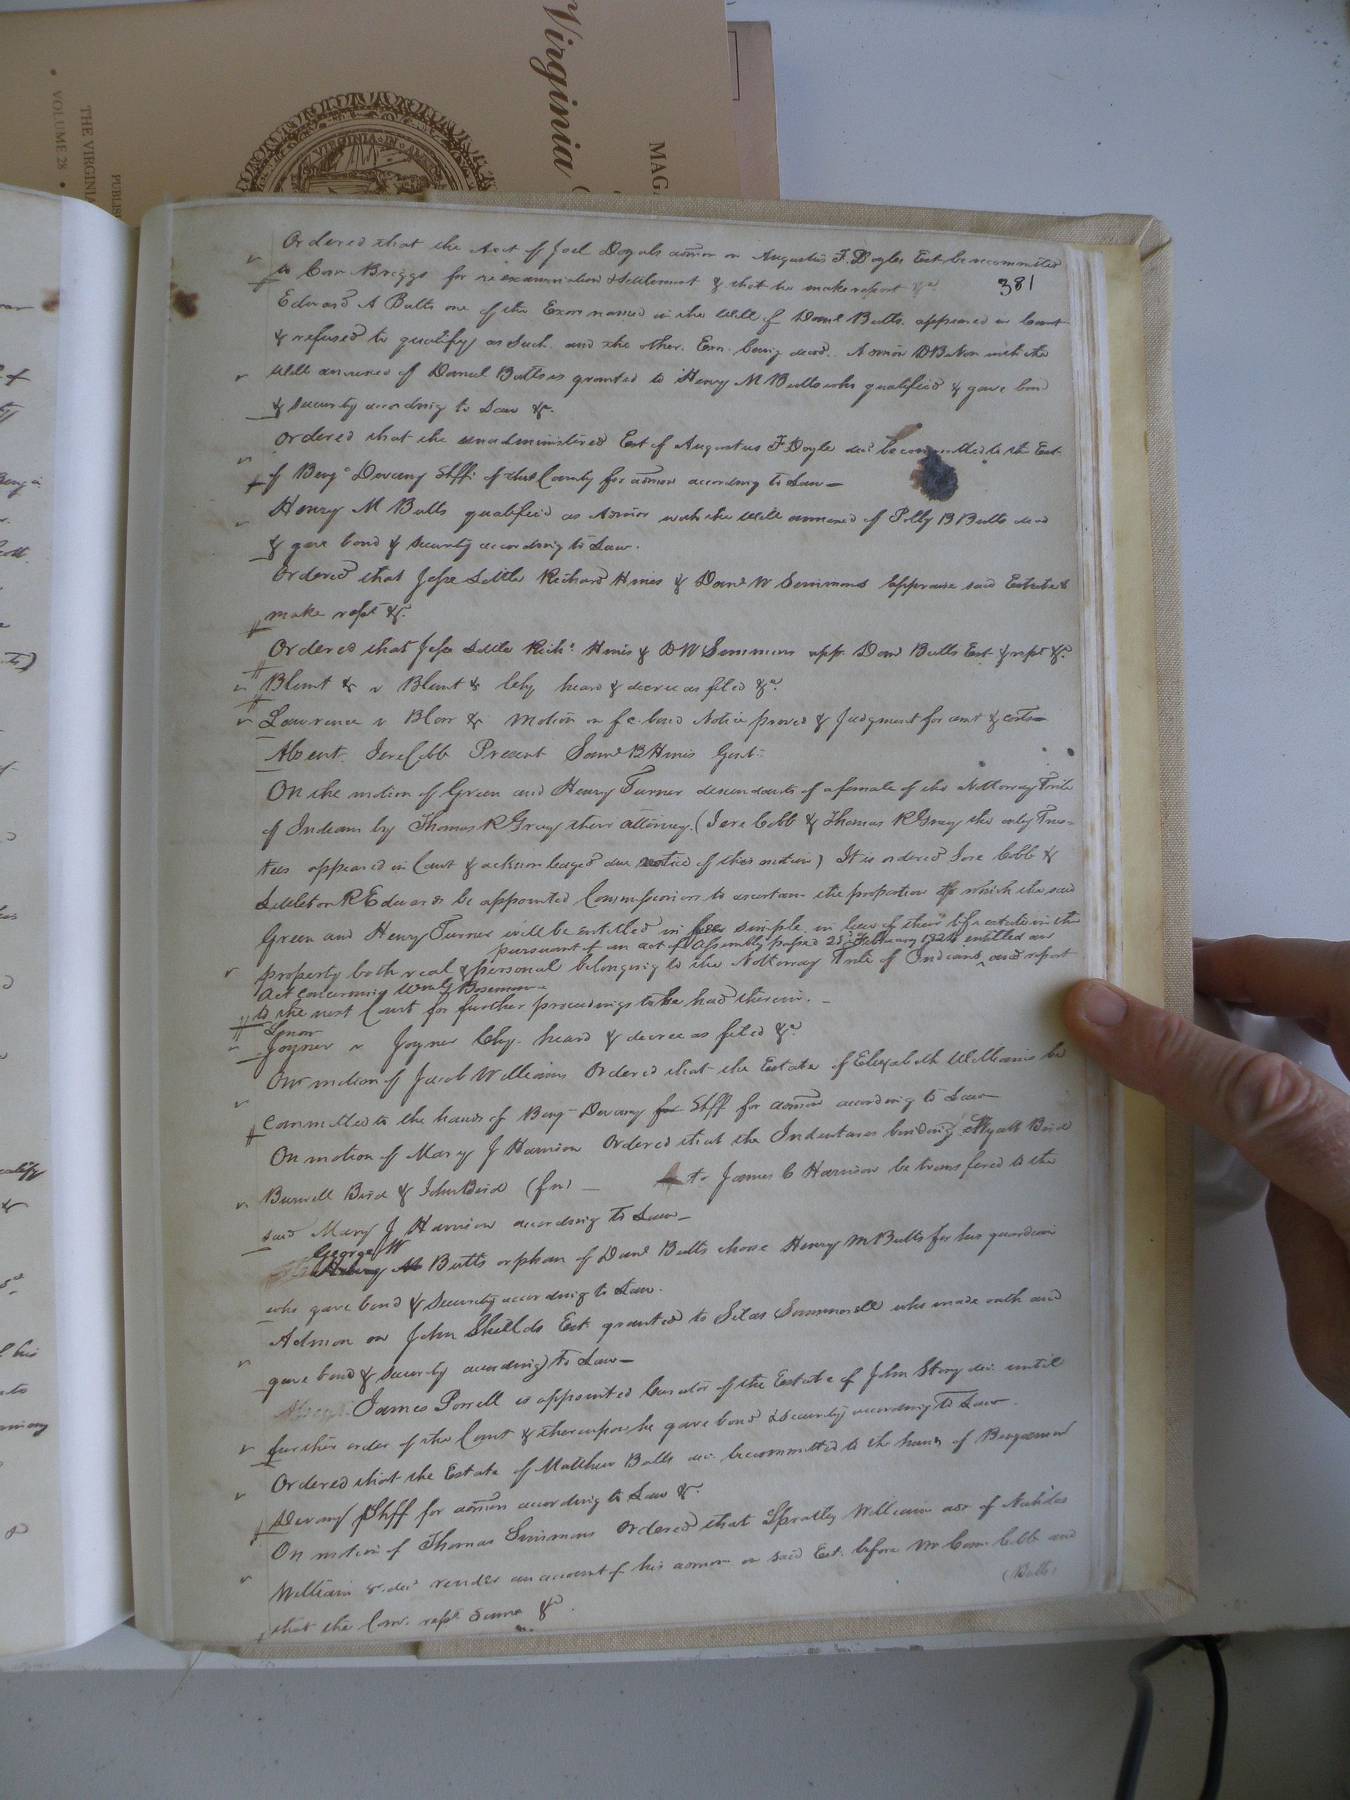 Virginia
MAG
THE VIRGINIA
VOLUME 28
PUBLIS
381
Ordered that the Acct of Joel Doyals admor on Augustus F. Doyles Est. be recommitted
to Com Briggs for re examination & settlement & that he make report &ca
Edward A Butts one of the Exors named in the Will of Danl Butts appeared in Court
& refused to qualify as such and the other Exn. being decd. Admon DB Non with the
Will annexed of Daniel Butts is granted to Henry M Butts who qualified & gave bond
& security according to Law &c.
Ordered that the unadministered Est of Augustus F Doyle decd be committed to the Est.
of Benj. Devany Shff. of this County for admon according to Law
Henry M Butts qualified as Admor with the Will annexed of Polly B Butts decd
& gave bond & security according to Law.
Ordered that Jesse Little Richard Hines & Danl W Simmons appraise said Estate &
make rept &c.
Ordered that Jesse Little Richd Hines & D W Simmons appr. Danl Butts Est. & rept &c.
Blunt &c v Blunt &c Chy heard & decree as filed &ca
Lawrence v Blow &c Motion on fc. bond Notice proved & Judgment for amt & costs
Absent Jere Cobb Present Saml B Hines Gent.
On the motion of Green and Henry Turner descendants of a female of the Nottoway Tribe
of Indians by Thomas R Gray their attorney. (Jere Cobb & Thomas R Gray the only Trus-
tees appeared in Court & acknowledged due notice of this motion) It is ordered Jere Cobb &
Littleton R Edwards be appointed Commissioners to ascertain the proportion to which the said
Green and Henry Turner will be entitled in fee simple in lieu of their life estate in the
pursuant of an act of Assembly passed 25th February 1824 entitled an
property both real & personal belonging to the Nottoway Tribe of Indians, and report
Act concerning Wm G Boseman
to the next Court for further proceedings to be had therein.
Joyner v Joyner Chy. heard & decree as filed &ca
On motion of Jacob Williams Ordered that the Estate of Elizabeth Williams be
committed to the hands of Benj. Devany for Shff for admon according to Law
On motion of Mary J Harrison Ordered that the Indentures binding Wyatt Bird
Burwell Bird & John Bird (fn) to James C Harrison be transfered to the
said Mary J Harrison according to Law
George W
Henry M Butts orphan of Danl Butts chose Henry M Butts for his guardian
who gave bond & security according to Law.
Admon on John Shields Est. granted to Silas Summerell who made oath and
gave bond & security according to Law
James Porrell is appointed Curator of the Estate of John Story decd until
further order of the Court & thereupon he gave bond & security according to Law.
Ordered that the Estate of Matthew Butts decd be committed to the hands of Benjamin
Devany Shff for admon according to Law &c.
On motion of Thomas Simmons Ordered that Spratley Williams adr of
Williams decd render an account of his admon on said Est. before Mr Com Cobb and
that the Com. rept same &ca
(Butts)